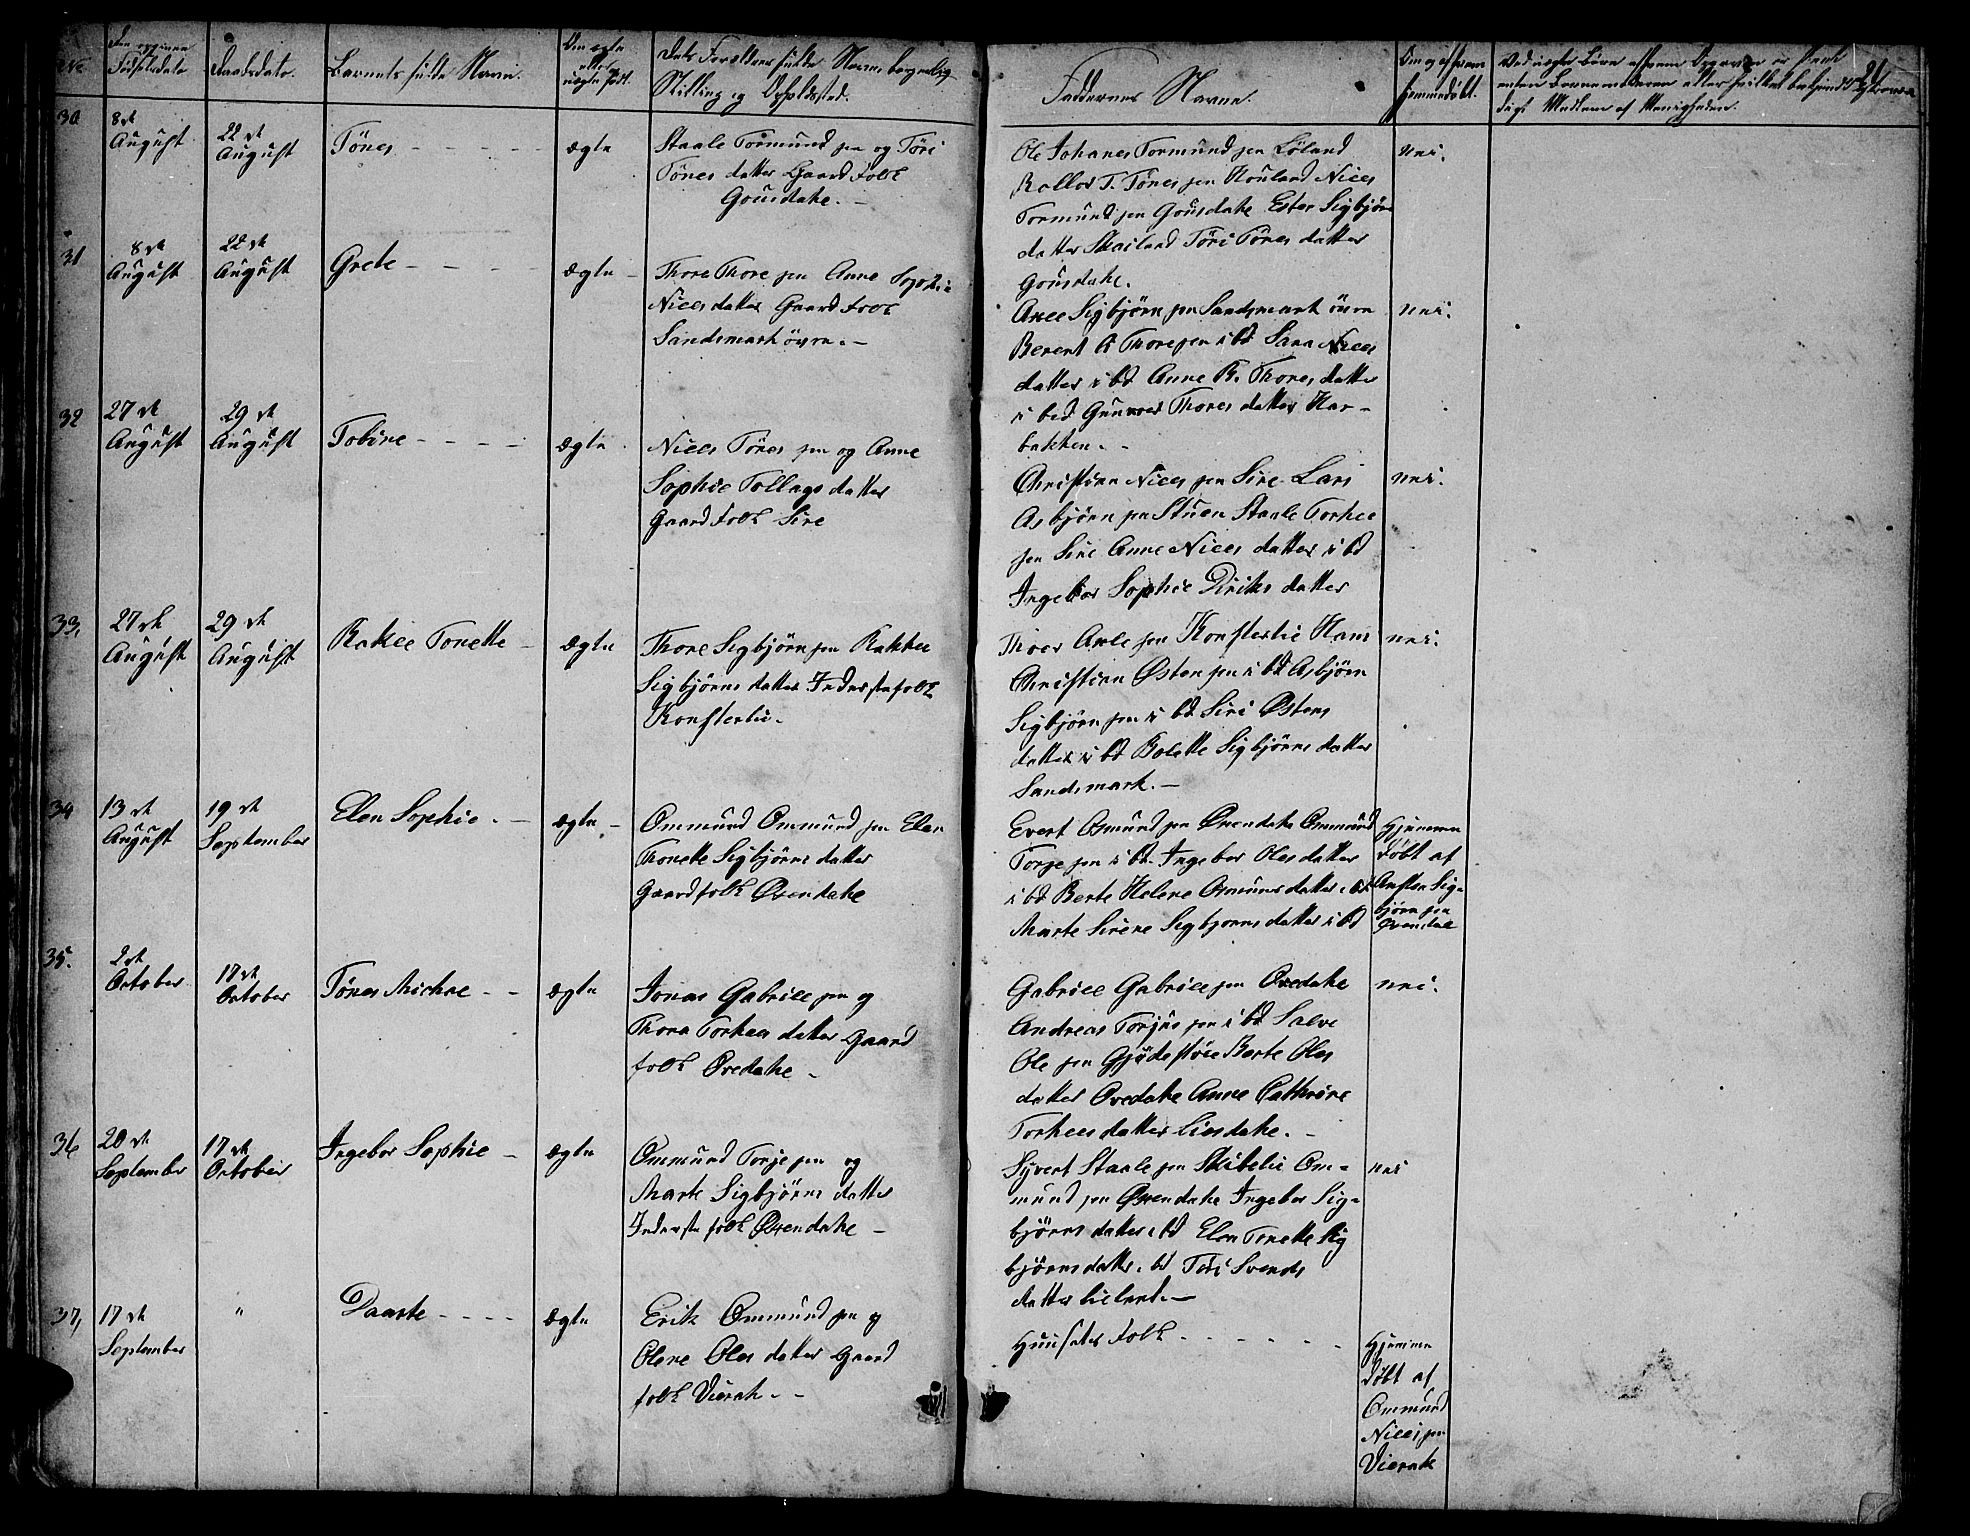 No
Den opgivne
Fødselsdato
Daabsdato.
Barnets fulde Navn.
Om ægte
eller
uægte født.
Dets Forældres fulde Navne borgerlig
Stilling og Opholdssted.
Faddernes Navne.
Om og af hvem
hjemmedøbt.
Ved uægte Børn
enten Barnemoderen eller
digt Medlem af Menigheden.
21
30
8de
August
22de
August
Tönes - - - - -
ægte
Staale Tormund sen og Töri
Tönes datter Gaard Folk
Gousdahe. -
Ole Johanes Tormund sen Löland
T. Tönes sen Houland Niels
Tormund sen Gousdahe Ester Sigbjörn
datter Skailand Töri Tönes datter
Gousdahe.
nei.
31
8de
August
22de
August
Grete - - - -
ægte -
Thore Thore sen Anne Sophie
Niels datter Gaard Folk
Sandsmark övre. -
Sigbjörn sen Sandsmark övre
Berent A Thore sen i bd Sara Niels
datter i bd Anne B. Thores datter
i bed Gunvor Thores datter Har-
bakken. -
nei.
32
27de
August
29de
August
Tobine - - - -
ægte
Niels Tönes sen og Anne
Sophie Tollags datter
Gaard Folk Sire
Christian Niels sen Sire Lars
Asbjörn sen Stuen Staale Torkel
sen Sire Anne Niels datter i bd
Ingebor Sophie Diriks datter
nei.
33,
27de
August
29de
August
Rakel Tonette -
ægte
Thore Sigbjörn sen Rakkel
Sigbjörns datter Inderste folk
Konsterlie.
sen Konsterlie Hans
Christian Østen sen i bd Asbjörn
Sigbjörn sen i bd Siri Østens
datter i bd Bolette Sigbjörns datter
Sandsmark. -
nei.
34
13de
August
19de
September
Elen Sophie. -
ægte -
Ommund Ommund sen Elen
Thonette Sigbjörns datter
Gaardfolk Øvendahe
Evert Osmund sen Øvendahe Ommund
Torje sen i bd. Ingebor Oles datter
i bd Berte Helene Osmunds datter i bd
Marte Sirene Sigbjorns datter i bd
Hjemme
døbt af
Sig-
björn sen
Øvendal
35.
2de
October
17de
October
Tönes Michae - -
ægte
Jonas Gabriel sen og
Thora Torkels datter Gaard
folk Øvedahe -
Gabriel Gabriel sen Øvedahe
Andreas Torjus sen i bd Salve
Ole sen Gjödestöle Berte Oles
datter Øvedahe Anne Cathrine
Torkels datter Liesdahe. -
nei.
36
20de
September
17de
October
Ingebor Sophie -
ægte
Ommund Torje sen og
Marte Sigbjörns datter
Inderste folk Øvendahe -
Syvert Staale sen Skibelie Om-
mund sen Øvendahe Ingebor Sig-
björns datter i bd Elen Tonette Sig
björns datter i bd Töri Svends
datter Lieland. -
nei
37,
17de
September
"
Daarte - - - -
ægte
Erik Ommund sen og
Olene Oles datter Gaard
folk Vierak. -
Huusets Folk - - - - -
Hjemme
døbt af
Ommund
Niels sen
Vierak